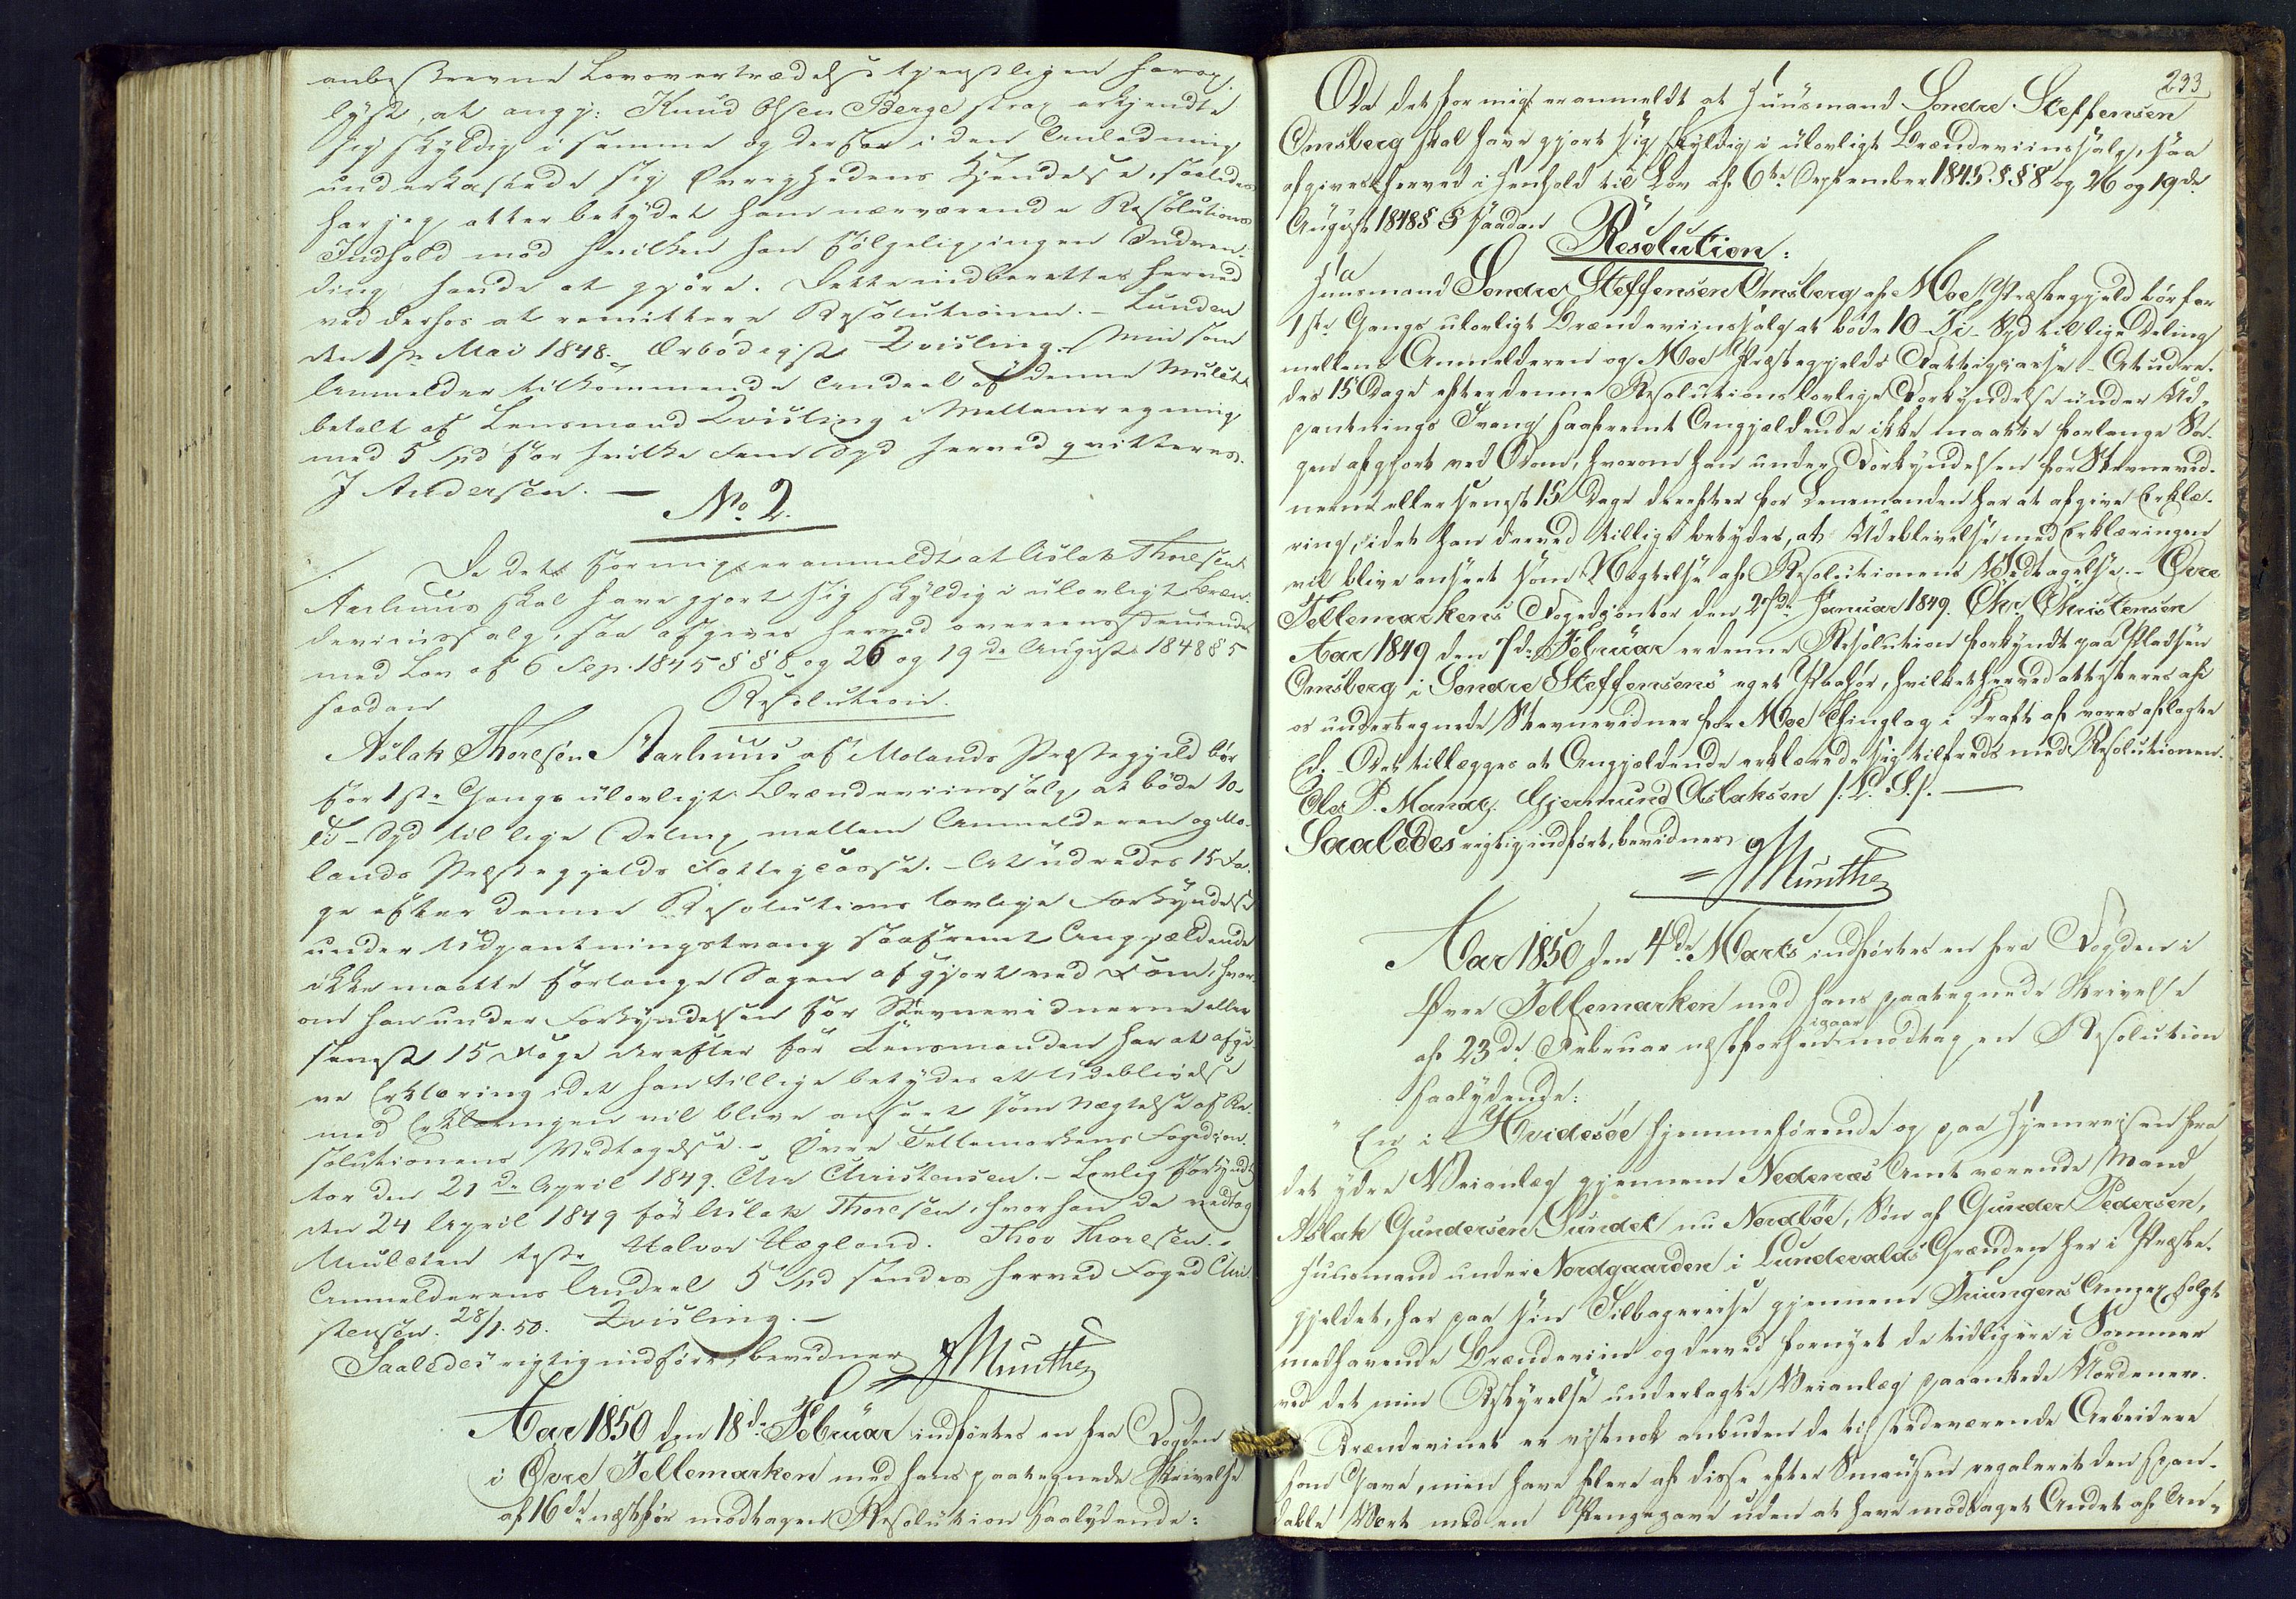 anbeskrevne Lovovertrædelse tjenstligen forop-
lyst, at angj: Knud Olsen Berge strax erkjendte
sig skyldig i samme og derfor i den Anledning
underkastede sig Øvrighedens Kjendelse, saaledes
har jeg atter betydet ham nærværende Resolutions
Indhold mod hvilken han følgelig ingen Indven-
ding havde at gjøre. Dette indberettes herved
ved derhos at remittere Resolutionen. – Lunden
den 1ste Mai 1848. Ærbødigst Qvisling. Min som
Anmelder tilkommende Andeel af denne Mulct
betalt af Lensmand Qvisling i Mellemregning
med 5 Spd for hvilke fem Spd herved qvitteres.
J Andersen. —
No 2.
Da det for mig er anmeldt at Aslak Thoresen
Aarhuus skal have gjort sig skyldig i ulovligt Bræn-
deviinssalg, saa afgives herved overeensstemmende
med Lov af 6 Sep. 1845 §§ 8 og 26 og 19de August 1848 § 5
saadan Resolution.
Aslak Thoresen Aarhuus af Molands Præstegjeld bør
for 1ste Gangs ulovligt Brændeviinssalg at bøde 10-
Ti – Spd til lige Deling mellem Anmelderen og Mo-
lands Præstegjelds Fattigcasse. – At udredes 15 Da-
ge efter denne Resolutions lovlige Forkyndelse
under Udpantningstvang saafremt Angjældende
ikke maatte forlange Sagen afgjort ved Dom, hvor-
om han under Forkyndelsen for Stevnevidnerne eller
senest 15 Dage derefter for Lensmanden har at afgi-
ve Erklæring idet han tillige betydes at Udeblivelse
med Erklæringen vil blive anseet som Nægtelse af Re-
solutionens Vedtagelse. – Øvre Tellemarkens Fogedcon-
tor den 21de April 1849. Chr Christensen. – Lovlig forkyndt
den 24 April 1849 for Aslak Thoresen, hvor han da vedtog
Mulcten teste Halvor Hegland. Thov Thoresen. –
Anmelderens Andeel 5 Spd sendes herved Foged Chri-
stensen. 28/1. 50. Qvisling. —
Saaledes rigtig indført, bevidner
Munthe
Aar 1850 den 18de Februar indførtes en fra Fogden
i Øvre Tellemarken med hans paategnede Skrivelse
af 16de næstfør modtagen Resolution saalydende:
233
Da det for mig er anmeldt at Huusmand Sondre Steffensen
Omsberg skal have gjort sig skyldig i ulovligt Brændeviinssalg, saa
afgives herved i Henhold til Lov af 6te September 1845 §§ 8 og 26 og 19de
August 1848 § 5 saadan
Resolution:
Huusmand Sondre Steffensen Omsberg af Moe Præstegjeld bør for
1ste Gangs ulovligt Brændeviinssalg at bøde 10 – Ti – Spd til lige Deling
mellem Anmelderen og Moe Præstegjelds Fattigcasse – At udre-
des 15 Dage efter denne Resolutions lovlige Forkyndelse under Ud-
pantnings Tvang saafremt Angjældende ikke maatte forlange Sa-
gen afgjort ved Dom, hvorom han under Forkyndelsen for Stevnevid-
nerne eller senest 15 Dage derefter for Lensmanden har at afgive Erklæ-
ring, idet han derved tillige betydes, at Udeblivelse med Erklæringen
vil blive anseet som Nægtelse af Resolutionens Vedtagelse. – Øvre
Tellemarkens Fogedcontor den 27de Januar 1849. Chr. Christensen
Aar 1849 den 7de Februar er denne Resolution forkyndt paa Pladsen
Omsberg i Sondre Steffensens eget Paahør, hvilket herved attesteres af
os undertegnede Stevnevidner for Moe Thinglag i Kraft af vores aflagte
Ed. – Det tillægges at Angjældende erklærede sig tilfreds med Resolutionen.
Ole P. Mandg. Gjermund Aslaksen /:L. S./. —
Saaledes rigtig indført, bevidner
Munthe
Aar 1850 den 4de Marts indførtes en fra Fogden i
Øvre Tellemarken med hans paategnede Skrivelse
af 23de Februar næstforhen igaar modtagen Resolution
saalydende:
" En i Hvidesøe hjemmehørende og paa Hjemreisen fra
det ydre Veianlæg gjennem Nedenæs Amt værende Mand
Aslak Gundersen Sundet nu Nordbøe, Søn af Gunder Pedersen,
Huusmand under Nordgaarden i Lundevalds Grænden her i Præste-
gjeldet, har paa sin Tilbagereise gjennem Treungens Annex solgt
medhavende Brændeviin og derved fornyet de tidligere i Sommer
ved det min Bestyrelse underlagte Veianlæg paaankede Uordener.
Brændevinet er vistnok anbuden de tilstedeværende Arbeidere
som Gave, men have flere af disse efter Smausen regaleret den span-
dable Vært med en Pengegave uden at have modtaget Andet af An-